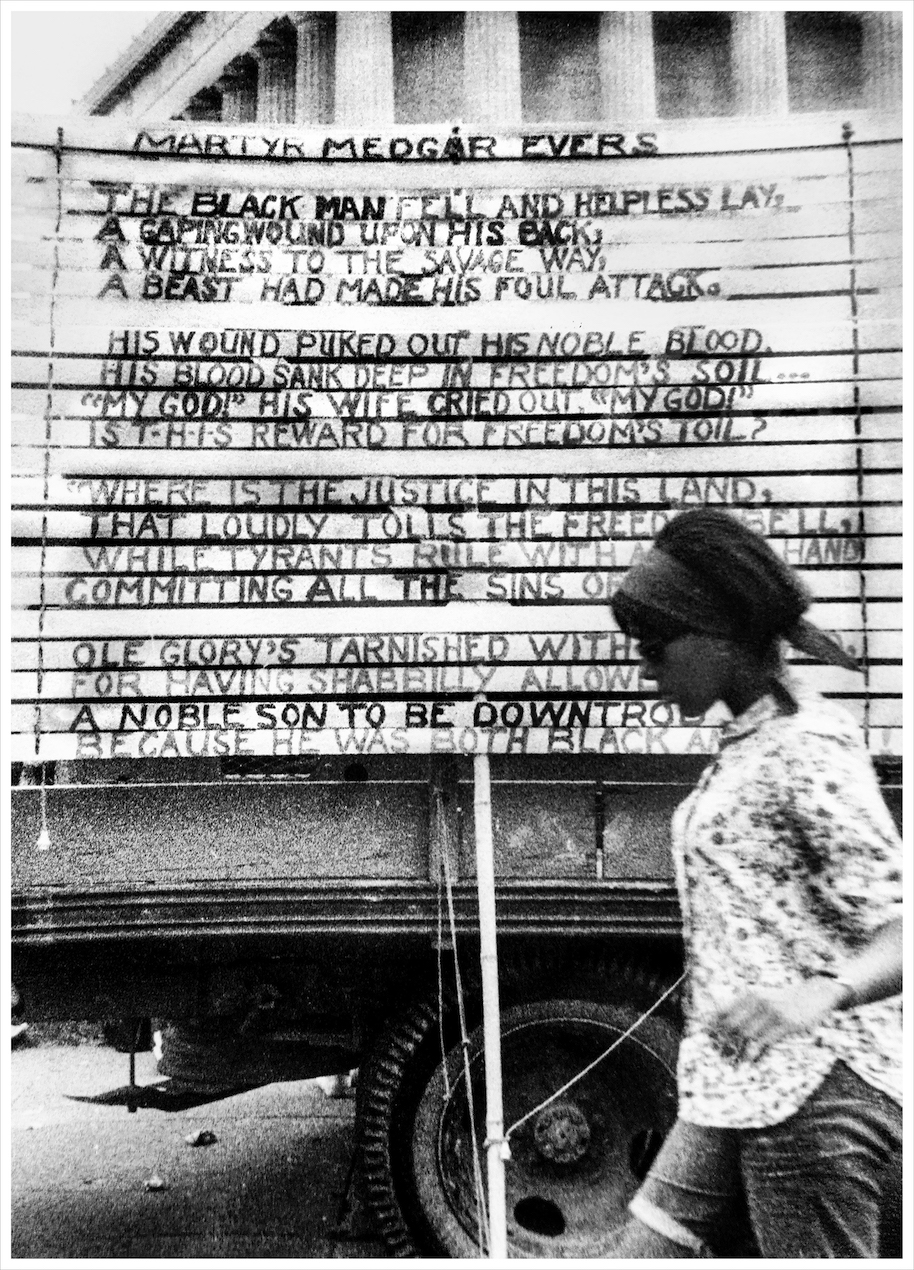 MARTYR MEDGAR EVERS
THE BLACK MAN FELL AND HELPLESS LAY,
A GAPING WOUND UPON HIS BACK,
A WITNESS TO THE SAVAGE WAY,
A BEAST HAD MADE HIS FOUL ATTACK.
HIS WOUND PUKED OUT HIS NOBLE BLOOD.
HIS BLOOD SANK DEEP IN FREEDOM'S SOIL...
"MY GOD!" HIS WIFE CRIED OUT, "MY GOD!"
IS T-H-I-S REWARD FOR FREEDOM'S TOIL?
"WHERE IS THE JUSTICE IN THIS LAND,
THAT LOUDLY TOLLS THE FREEDOM BELL,
WHILE TYRANTS RULE WITH HAND
COMMITTING ALL THE SINS OF
OLE GLORY'S TARNISHED WITH
FOR HAVING SHABBILY ALLOWED
A NOBLE SON TO BE DOWNTROD
BECAUSE HE WAS BOTH BLACK !